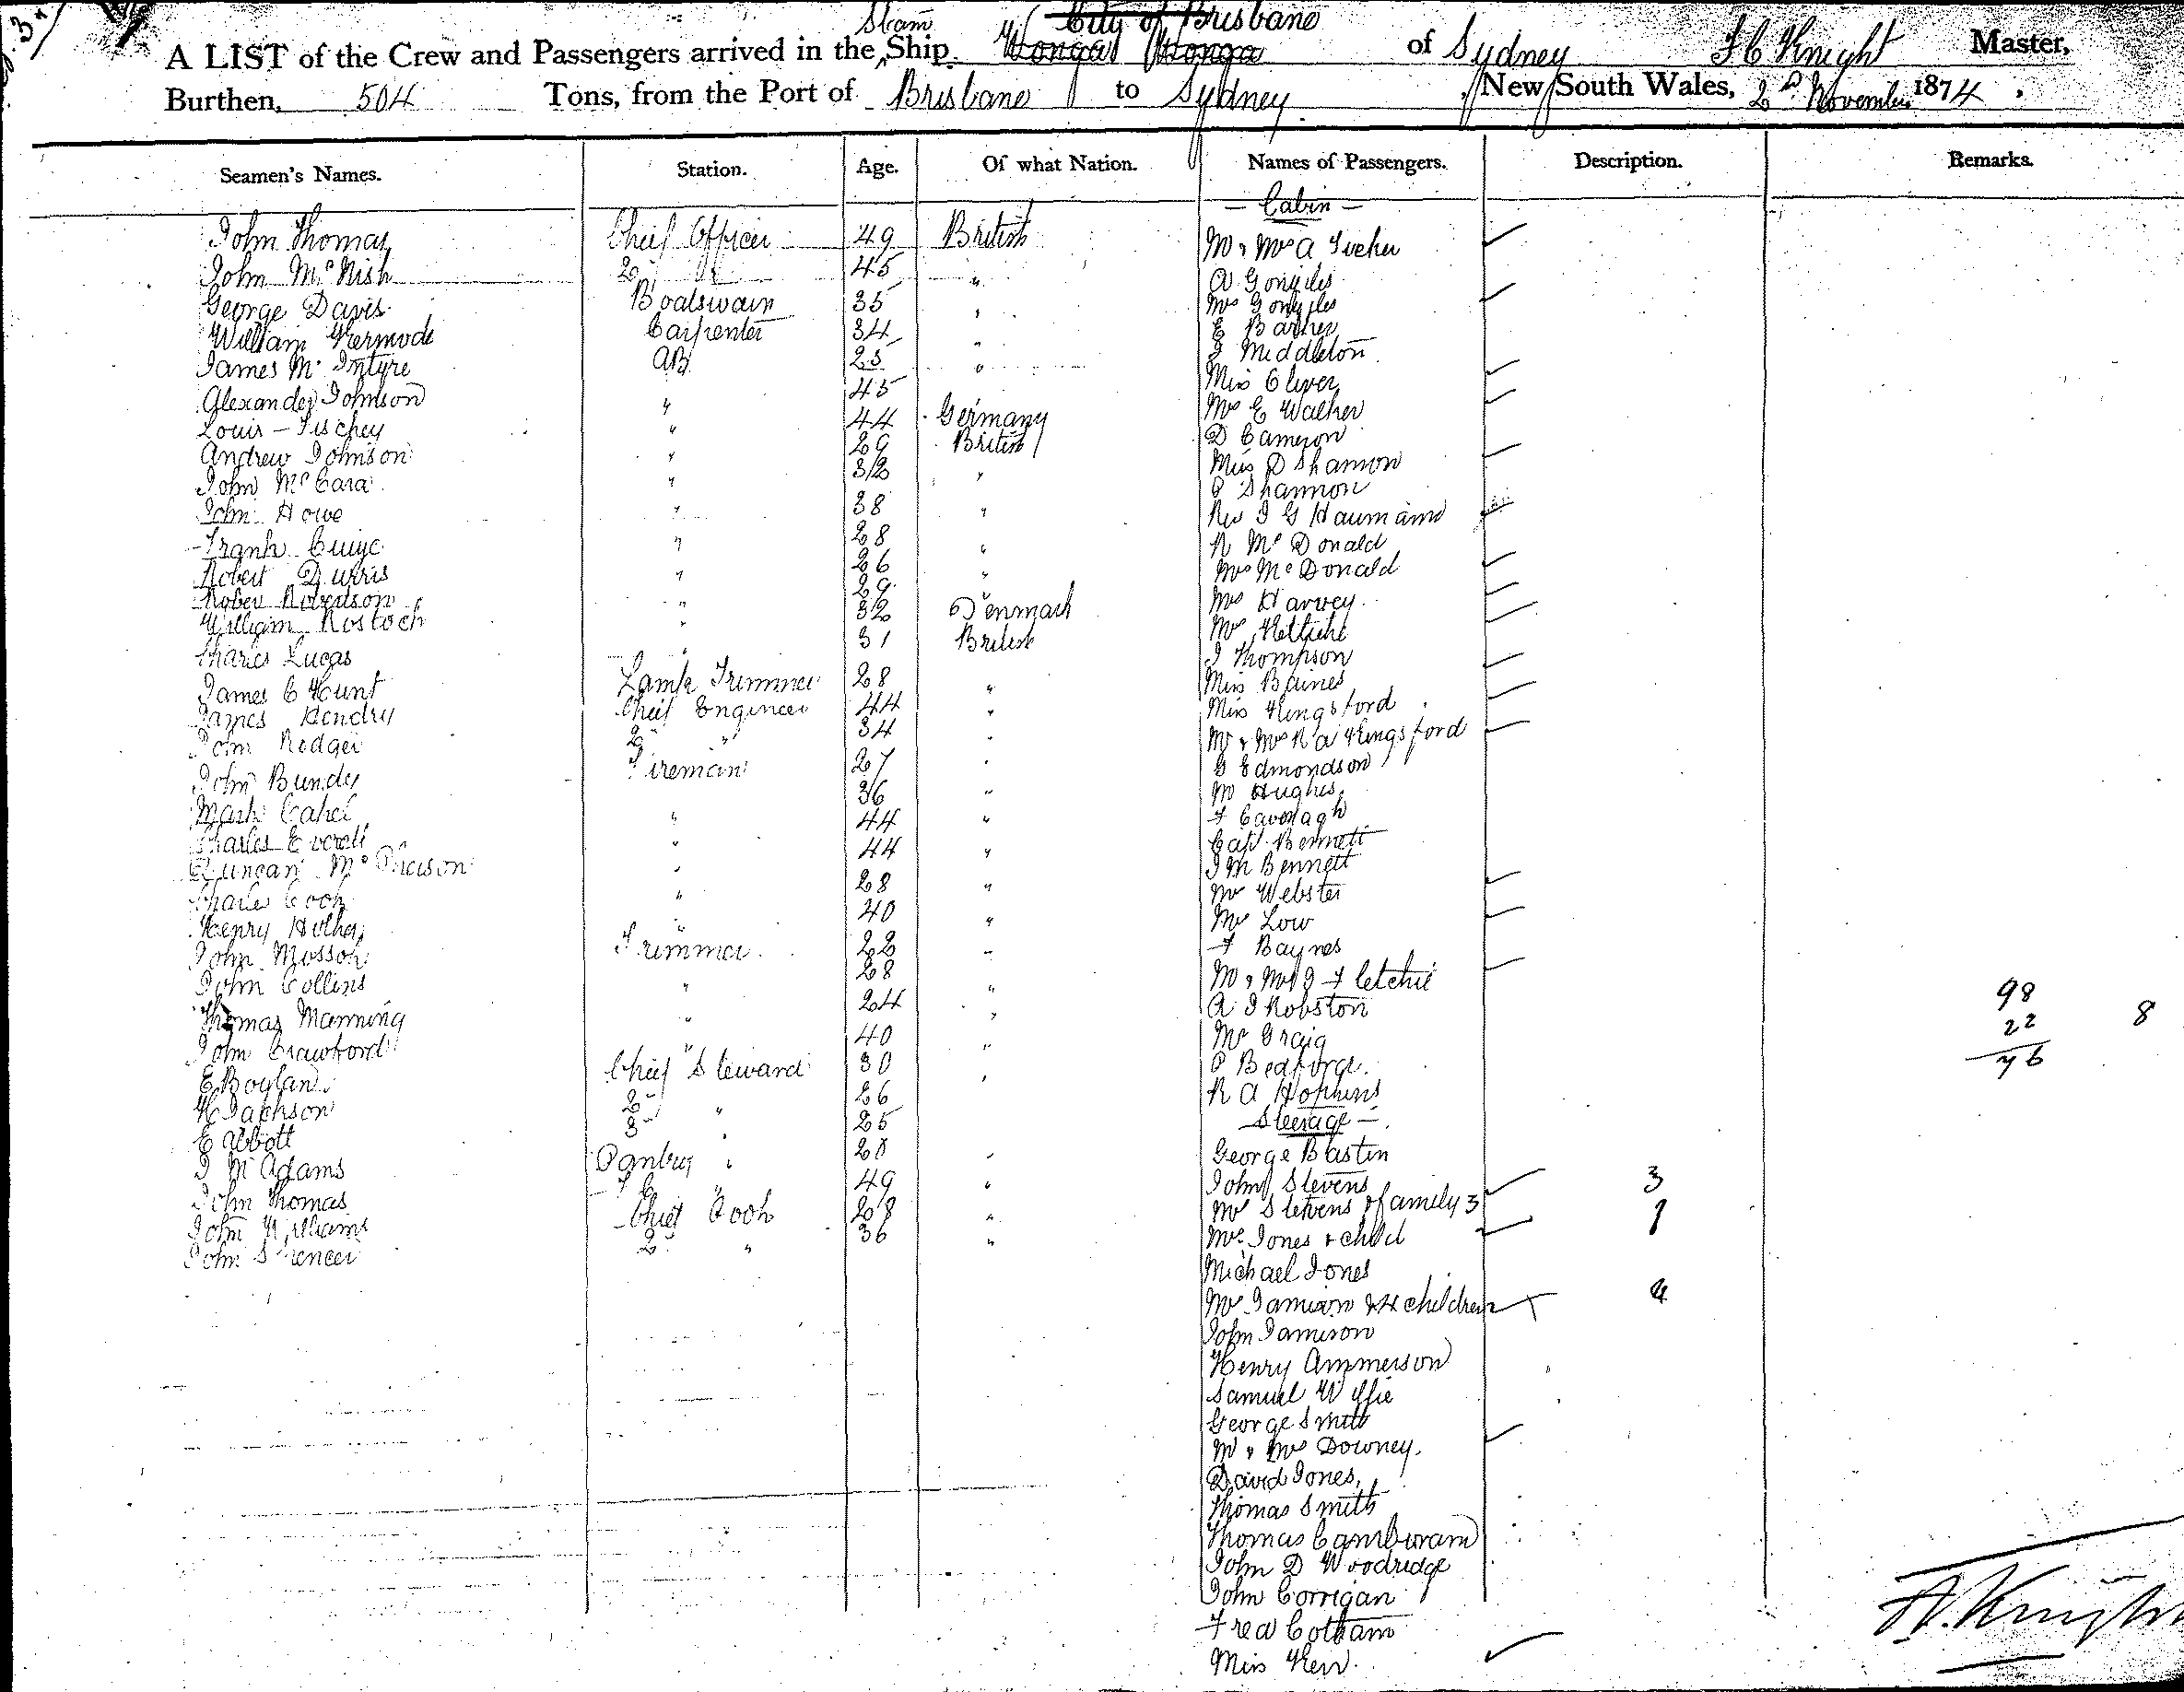 Steam City of Brisbane
A LIST of the Crew and Passengers arrived in the Ship Wonga Wonga of Sydney F C Knight Master,
Burthen, 504 Tons, from the Port of Brisbane to Sydney New South Wales, 2nd November 1874
Seamen's Names. Station. Age. Of what Nation. Names of Passengers. Description. Remarks.
— Cabin —
John Thomas Chief Officer 49 British
John McNish 2 " 45 "
George Davis Boatswain 35 "
William Kermode Carpenter 34 "
James McIntyre AB 25 "
Alexander Johnson " 45
Louis Fischer " 44 Germany
Andrew Johnson " 29 British
John McCara " 32 "
John Howe " 38 "
Frank " 28 "
Robert Durris " 26 "
Robert Robertson " 29 "
William Rostoch " 32 Denmark
Charles Lucas " 31 British
James C Hunt Lamp Trimmer 28 "
James Hendry Chief Engineer 44 "
John Rodger 2 " 34 "
John Bundy Fireman 27 "
Mark Cahel " 36 "
Charles Everett " 44 "
Duncan McPherson " 44 "
Charles Cook " 28 "
Henry " 40 "
John Mosson Trimmer 22 "
John Collins " 28 "
Thomas Manning " 24 "
John Crawford " 40 "
E Boylan Chief Steward 30 "
H Jackson 2 " 26
E Abbott 3 " 25
J McAdams Pantry " 20 "
John Thomas F C " 49 "
John Williams Chief Cook 28 "
John Spencer 2 " 36 "
Mr & Mrs A Tucker
A Gongiles
Mrs Gongiles
E Barnes
J Middleton
Miss Oliver
Mrs E Walker
D Cameron
Miss D Shannon
P Shannon
Rev J G Haumann
R McDonald
Mrs McDonald
Mrs Harvey
Mrs
J Thompson
Miss Baines
Miss Kingsford
Mr & Mrs R A Kingsford
G Edmondson
M Hughes
F Cavanagh
Capt Bennett
J M Bennett
Mr Webster
Mrs Low
F Baynes
Mr & Mrs J Fletcher
A J Robston
Mr Graig
P Bedford
R A Hopkins
— Steerage —
George Bastin
John Stevens
Mrs Stevens & family 3 3
Mrs Jones & child 1
Michael Jones
Mrs Jamison & 4 children 4
John Jamison
Henry Ammerson
Samuel Wyllie
George Smith
Mr & Mrs Downey
David Jones
Thomas Smith
Thomas
John D Woodridge
John Corrigan
Fred Cotham
Miss Kerr
98
22 8
76
F. Knight